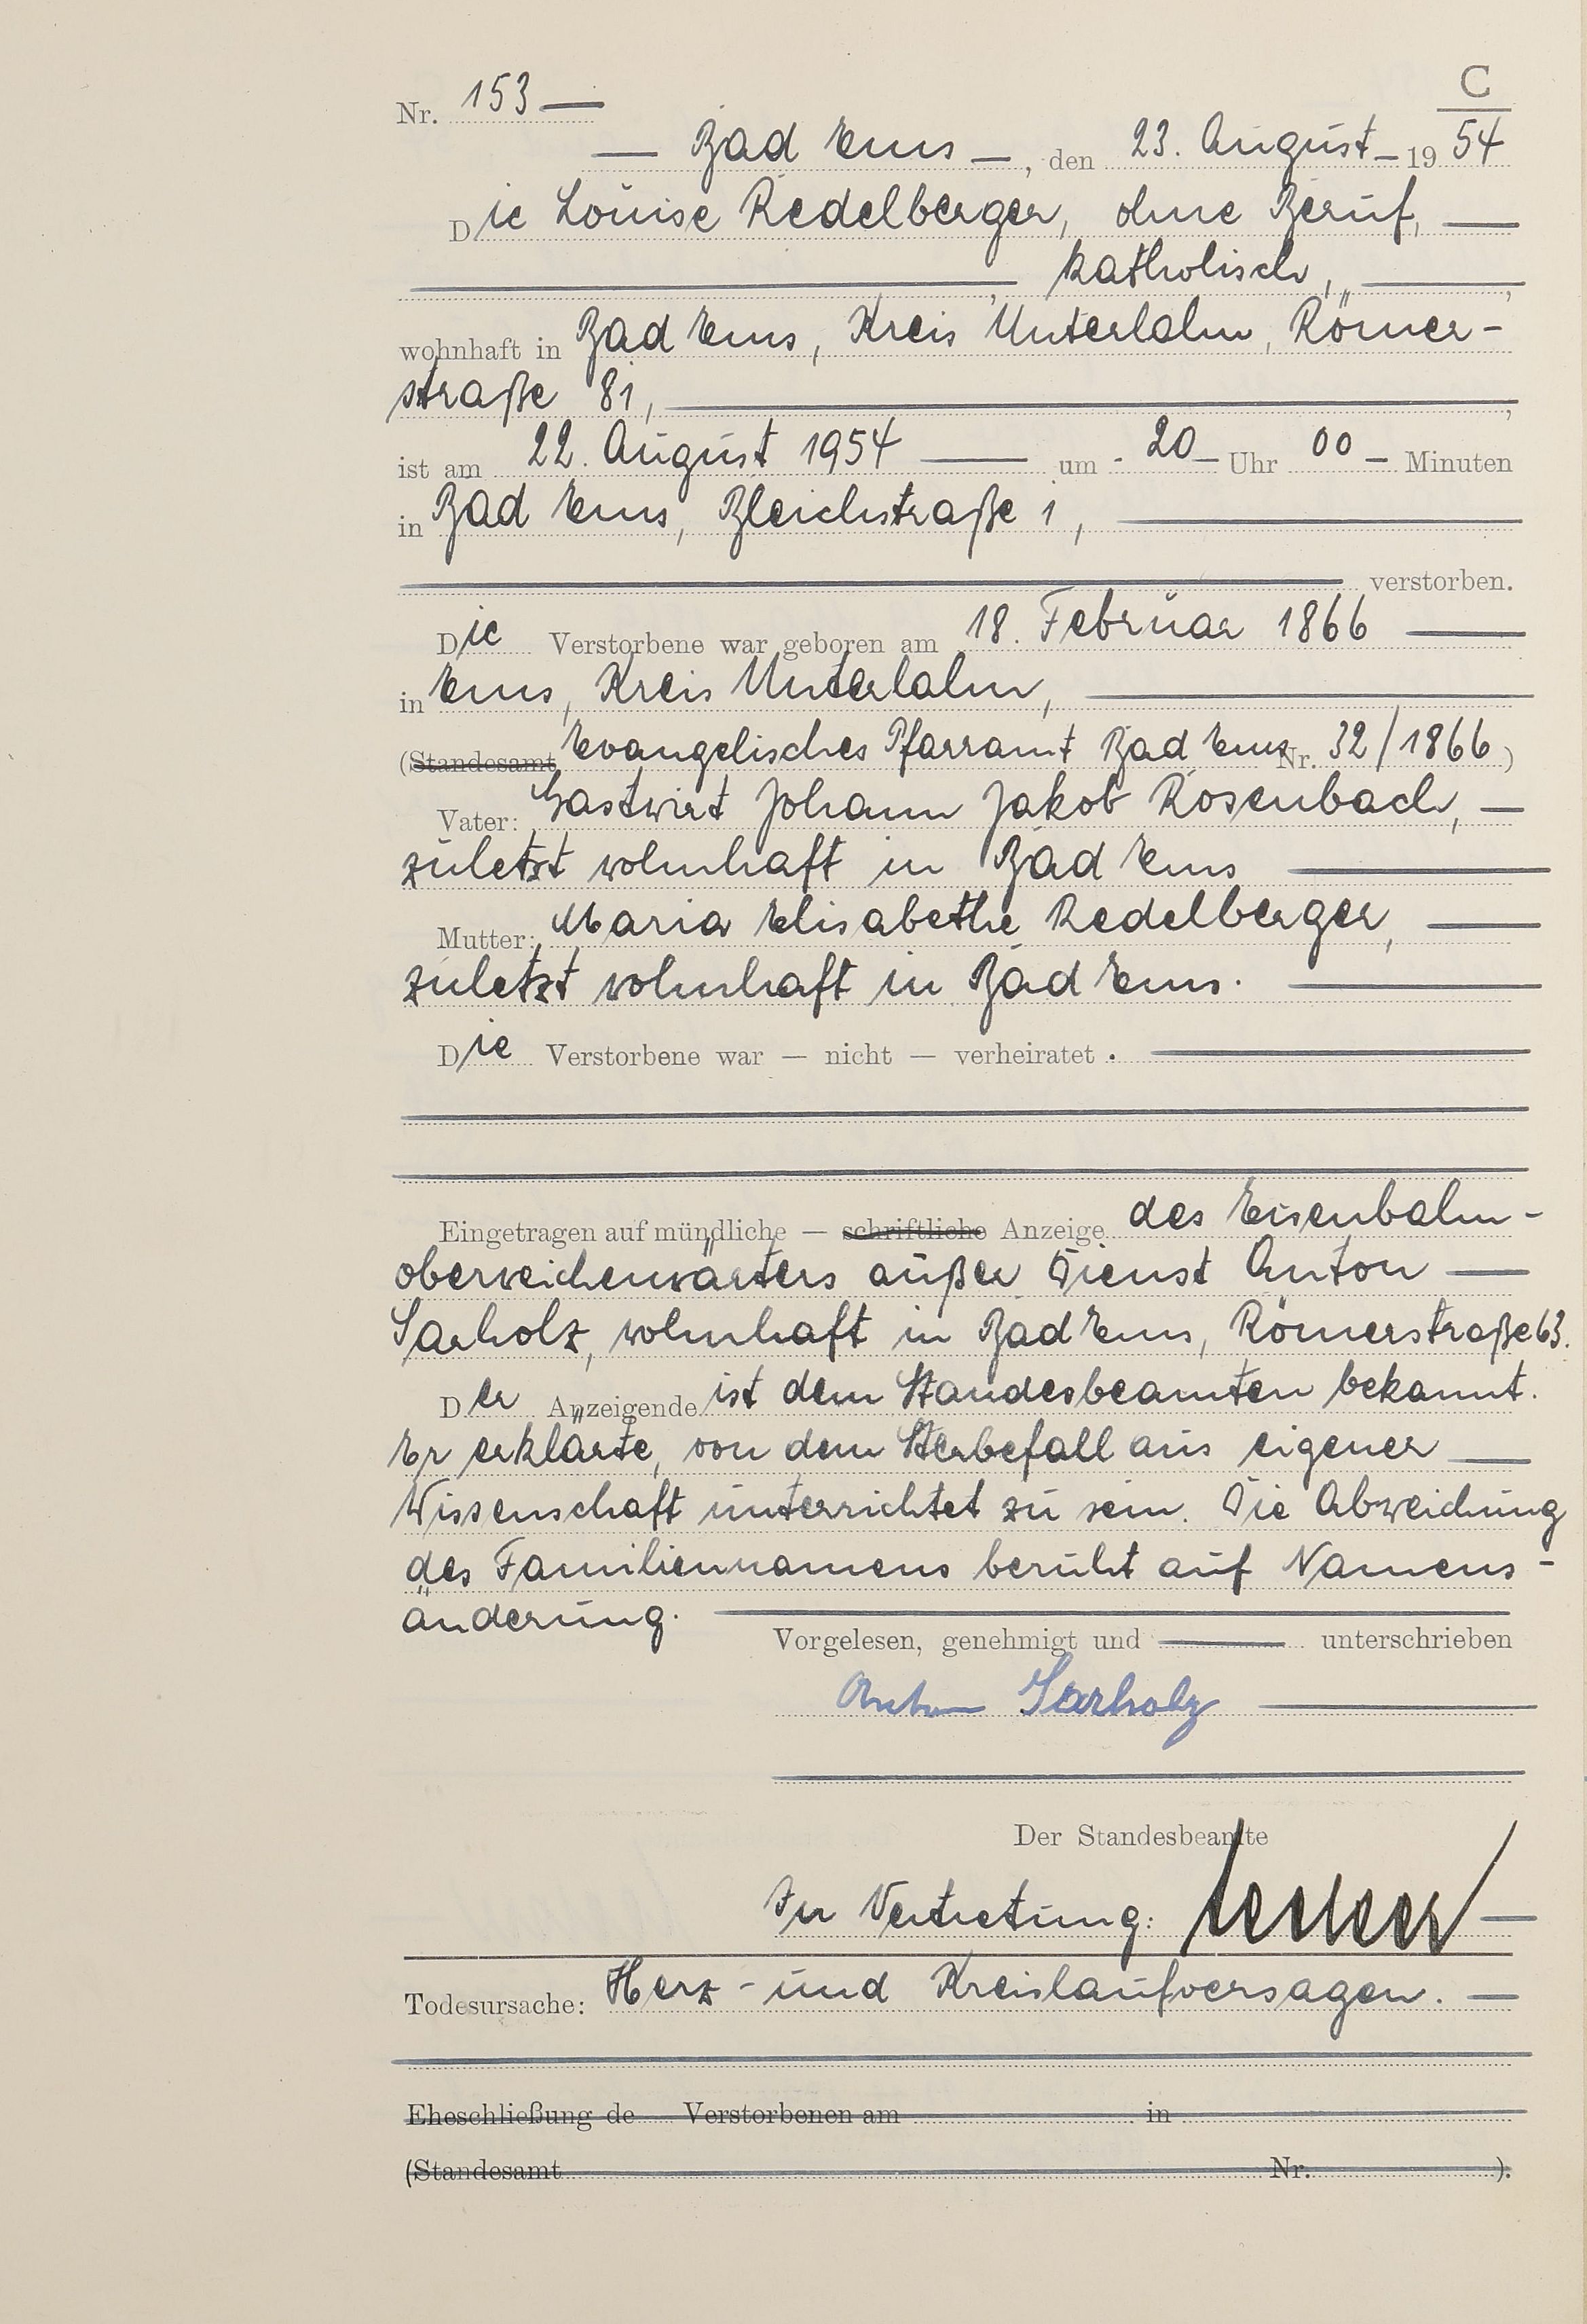 C
Nr. 153 —
— Bad Ems —, den 23. August — 19 54
Die Louise Redelberger, ohne Beruf, —
—, katholisch, —,
wohnhaft in Bad Ems, Kreis Unterlahn, Römer-
straße 81, —,
ist am 22. August 1954 — um - 20 — Uhr 00 — Minuten
in Bad Ems, Bleichstraße 1, —
— verstorben.
Die Verstorbene war geboren am 18. Februar 1866 —
in Ems, Kreis Unterlahn, —
(Standesamt Evangelisches Pfarramt Bad Ems Nr. 32/1866)
Vater: Gastwirt Johann Jakob Rosenbach, —
zuletzt wohnhaft in Bad Ems —
Mutter: Maria Elisabethe Redelberger, —
zuletzt wohnhaft in Bad Ems. —
Die Verstorbene war — nicht — verheiratet. —
Eingetragen auf mündliche — schriftliche Anzeige des Eisenbahn-
oberweichenwärters außer Dienst Anton —
Sarholz, wohnhaft in Bad Ems, Römerstraße 63.
Der Anzeigende ist dem Standesbeamten bekannt.
Er erklärte, von dem Sterbefall aus eigener —
Wissenschaft unterrichtet zu sein. Die Abweichung
des Familiennamens beruht auf Namens-
änderung. —
Vorgelesen, genehmigt und — unterschrieben
Anton Sarholz —
Der Standesbeamte
In Vertretung: —
Todesursache: Herz- und Kreislaufversagen. —
Eheschließung de Verstorbenen am in
(Standesamt Nr. ).